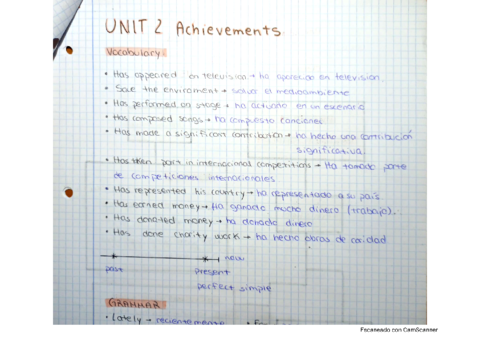 UNIT 2 Achievements
Vocabulary
• Has appeared on television → ha aparecido en televisión.
• Save the enviroment → salva el medioambiente
• Has performed on stage → ha actuado en un escenario
• Has composed songs → ha compuesto canciones
• Has made a significant contribution → ha hecho una contribución
significativa.
• Has taken part in internacional competitions → Ha tomado parte
de competiciones internacionales
• Has represented his country → ha representado a su país
• Has earned money → Ha ganado mucho dinero (trabajo).
• Has donated money → ha donado dinero
• Has done charity work → ha hecho obras de caridad
now
past present
perfect simple
GRAMMAR
• Lately → recientemente
Escaneado con CamScanner